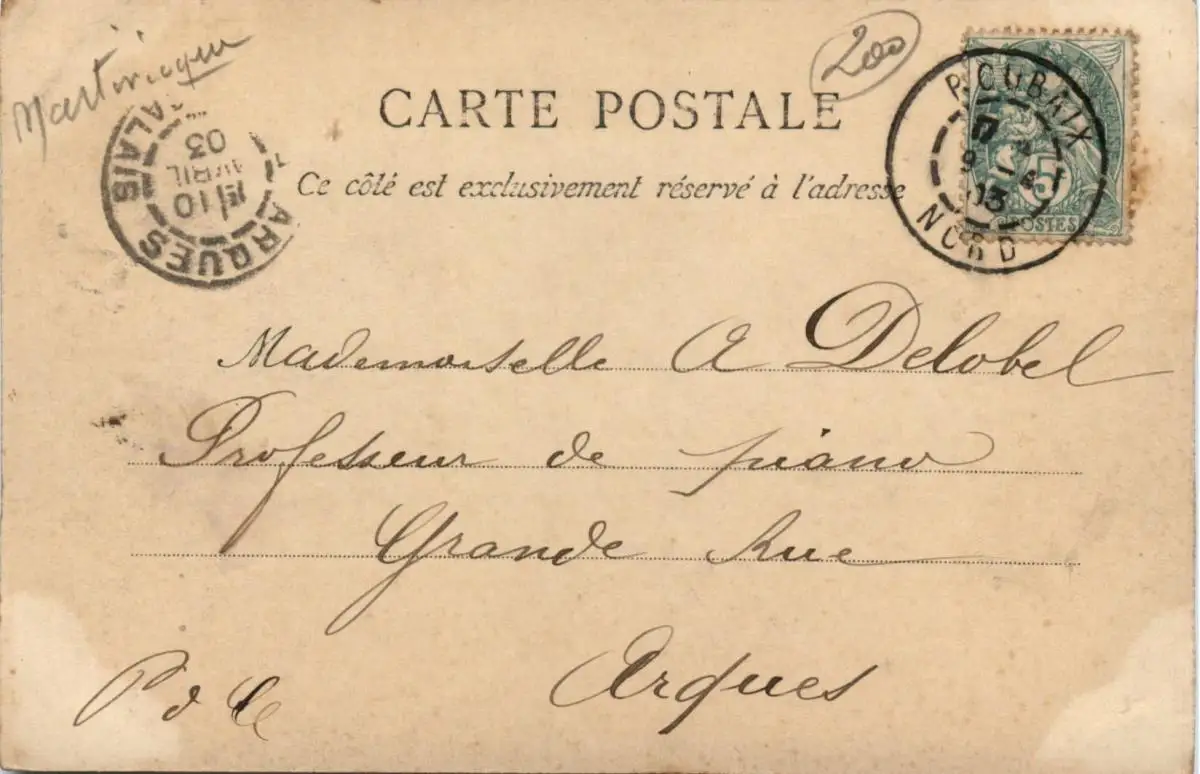 Martinique
200
CARTE POSTALE
Ce côté est exclusivement réservé à l'adresse
ROUBAIX
03
NORD
5
POSTES
ARQUES
CALAIS
10
AVRIL
03
Mademoiselle A Delobel
Professeur de piano
Grande Rue
Arques
P d C